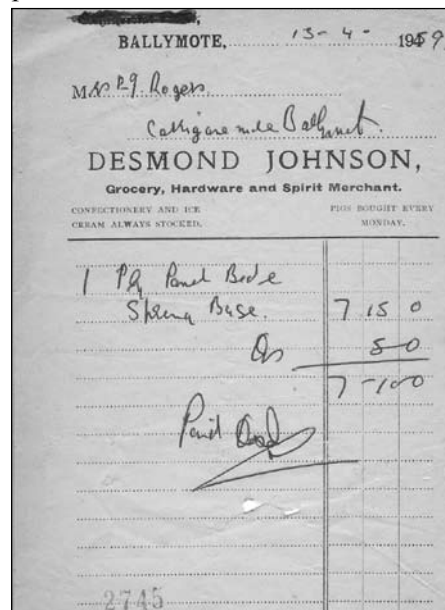 BALLYMOTE, 13-4-1959
Mrs P.J. Rogers
DESMOND JOHNSON,
Grocery, Hardware and Spirit Merchant.
CONFECTIONERY AND ICE CREAM ALWAYS STOCKED.
PIGS BOUGHT EVERY MONDAY.
1 Ply Panel
Spring Base. 7 15 0
5-0
7-10-0
Paid
2745